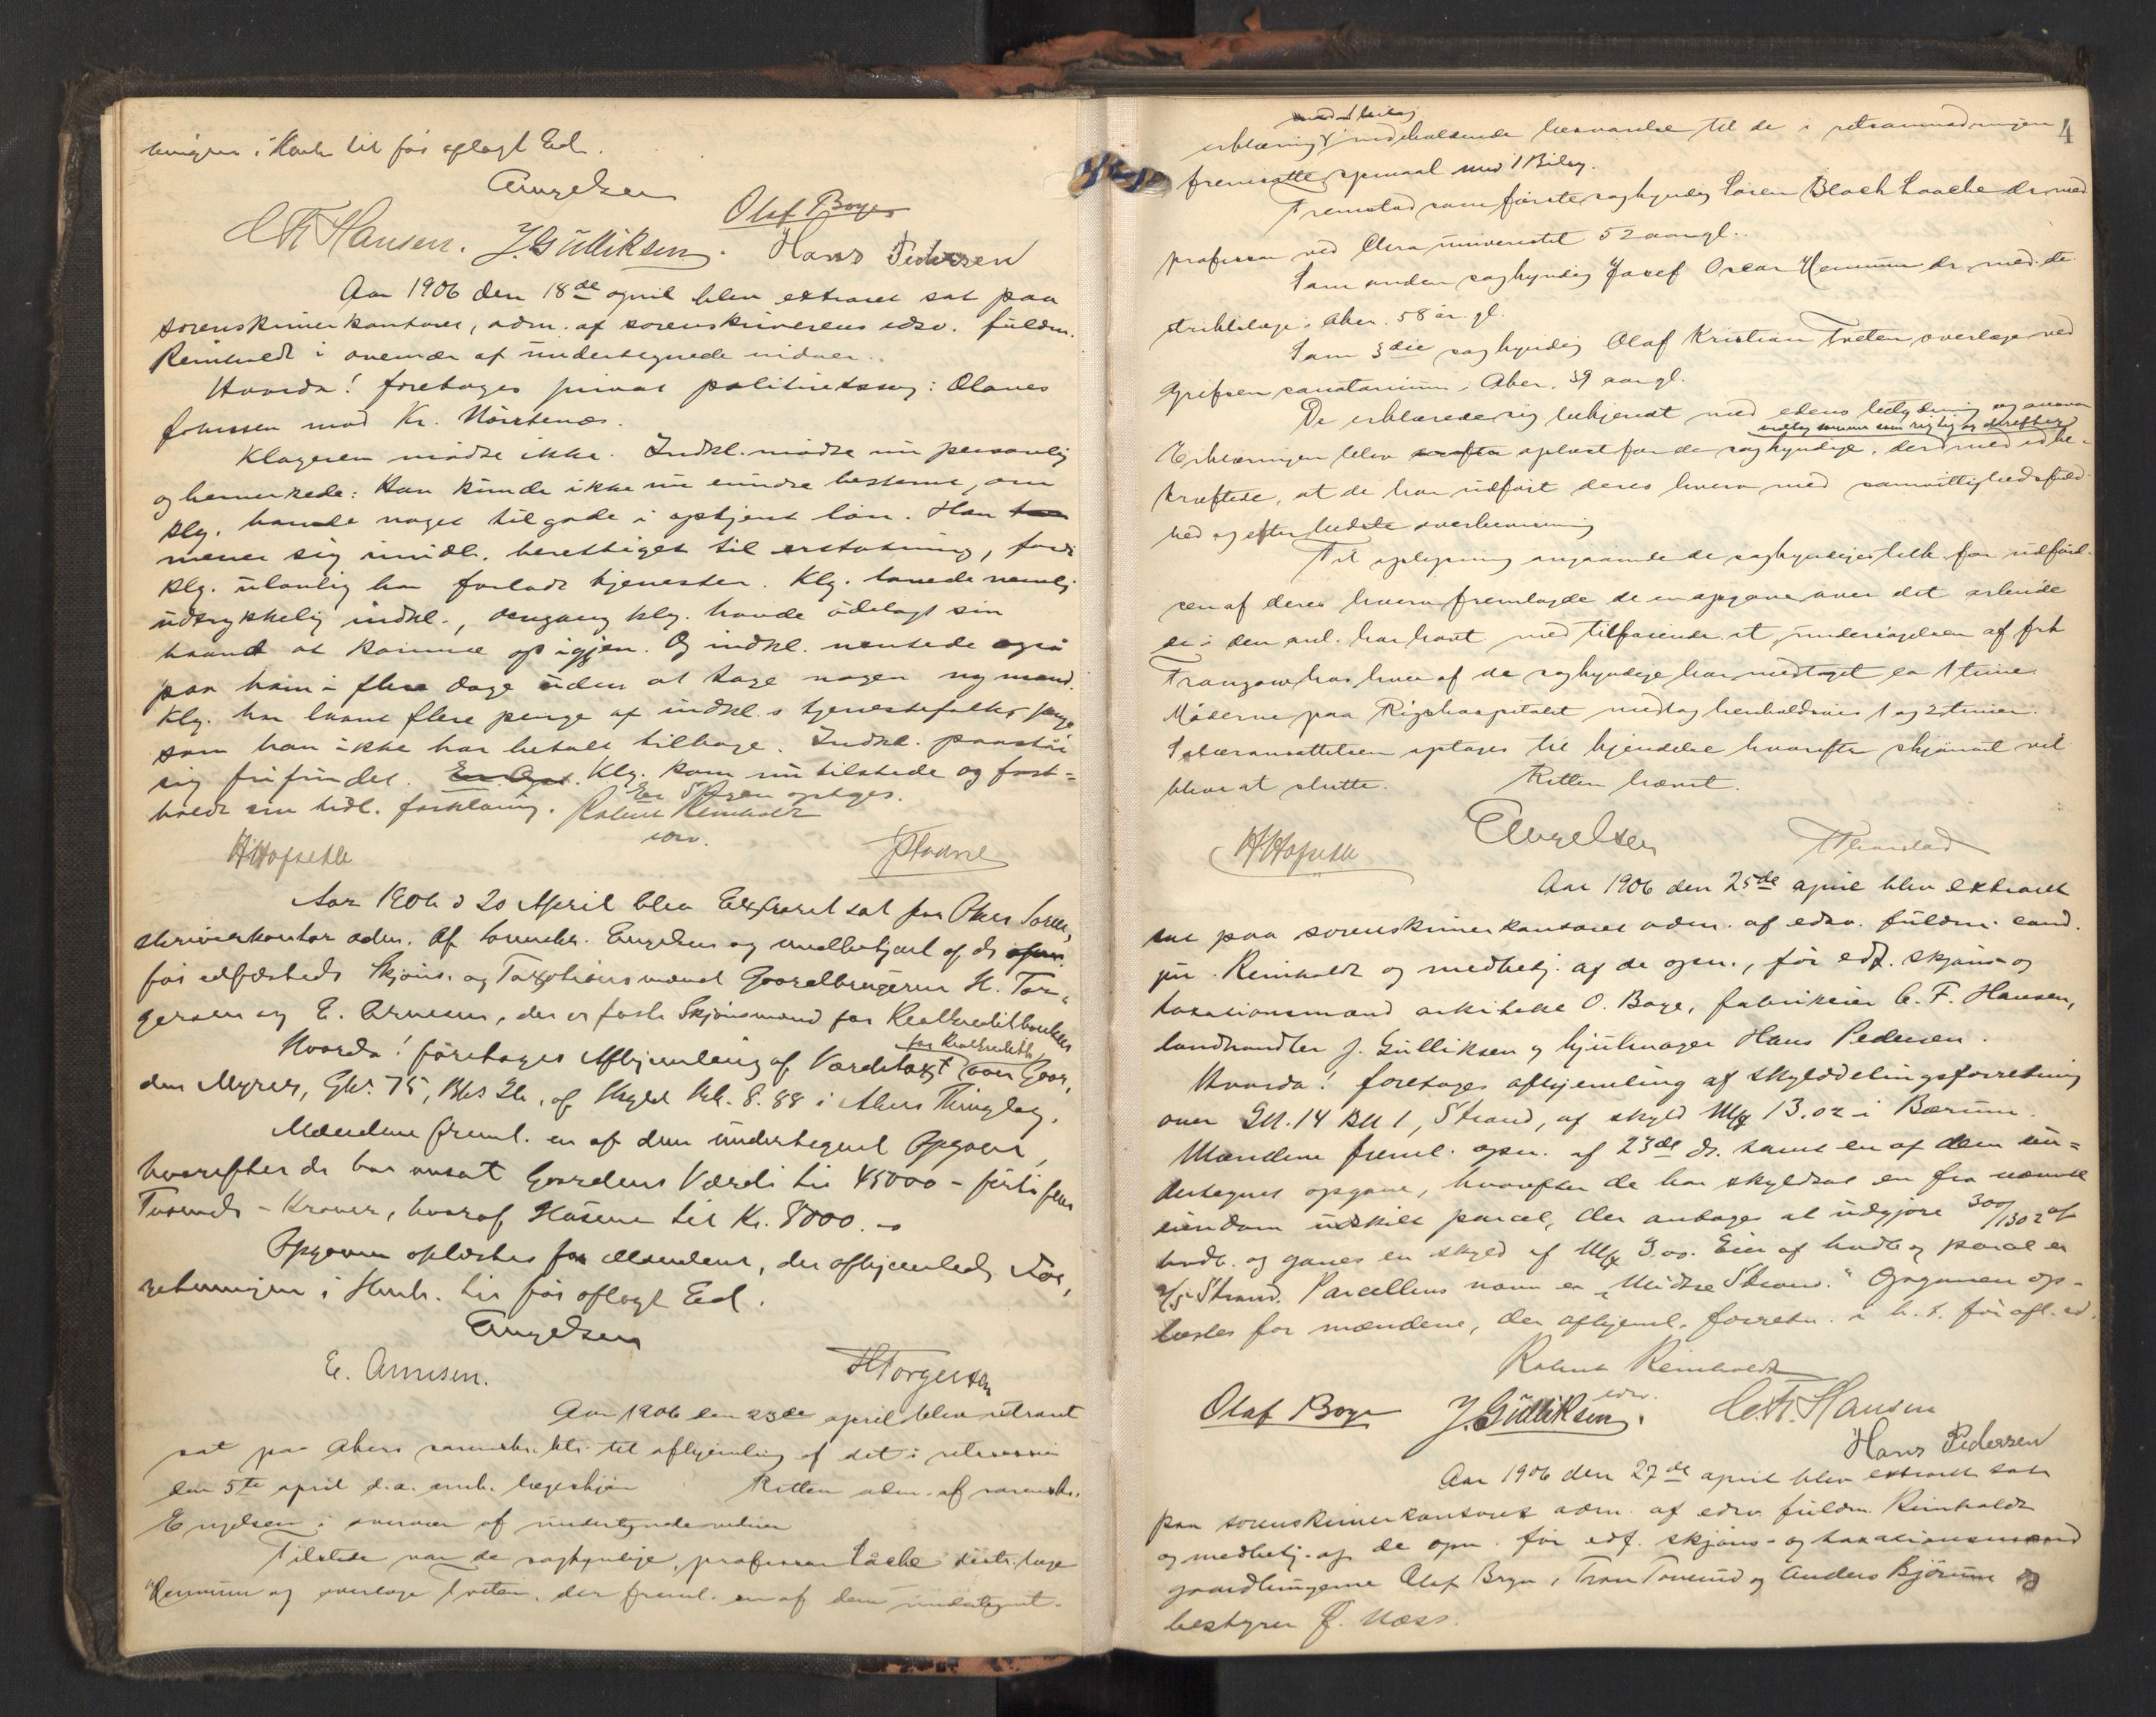 ningen i Henh. til før aflagt Ed.
Engelsen
C Fr Hansen. J. Gulliksen. Olaf Boye Hans Pedersen
Aar 1906 den 18de april blev extraret sat paa
sorenskriverkontoret, adm. af sorenskriverens edsv. fuldm.
Reinholdt i overvær af undertegnede vidner.
Hvorda! foretoges privat politiretssag: Olaves
Johnssen mod Kr.
Klageren mødte ikke. Indkl. mødte nu personlig
og bemerkede: Han kunde ikke nu erindre bestemt, om
klg. havde noget tilgode i optjent løn. Han
mener sig imidl. berettiget til erstatning, fordi
klg. ulovlig har forladt tjenesten. Klg. lovede nemlig
udtrykkelig indkl., dengang klg. havde ødelagt sin
haand at komme op igjen. Og indkl. ventede også
paa ham i flere dage uden at tage nogen ny mand.
Klg. har laant flere penge af indkl.s tjenestefolk,
som han ikke har betalt tilbage. Indkl. paastår
sig frifundet. Klg. kom nu tilstede og fast-
holdt sin tidl. forklaring. Sagen optages.
Robert Reinholdt
edsv.
H Hofseth
Aar 1906 d 20 April blev Extraret sat paa Akers Soren-
skriverkontor adm. af Sorenskr. Engelsen og medbetjent af de
før edfæstede Skjøns- og Taxationsmænd Gaardbrugerne H. Tor-
gersen og E. Arnesen, der er faste Skjønsmænd for Realkreditbanken
Hvorda! foretoges Afhjemling af Værditaxt for Realkreditb. over Gaar-
den Myrer, Gbr. 75, Bbr , af Skyld Mk. 8.88 i Akers Thinglag.
Mændene freml. en af dem undertegnet Opgave,
hvorefter de har ansat Gaardens Værdi til 45000 - førti fem
Tusende - Kroner, hvoraf Husene til Kr. 8000.
Opgaven oplæstes for Mændene, der afhjemlede For-
retningen i Henh. til før aflagt Ed.
Engelsen
E. Arnesen. H Torgersen
Aar 1906 den 23de april blev extraret
sat paa Akers sorenskr. ktr. til afhjemling af det i retssession
den 5te april d.a. lægeskjøn Retten adm. af sorenskr.
Engelsen i overvær af undertegnede vidner
Tilstede var de sagkyndige, professor Laache, distr.læge
Hemmum og overlæge Tveten, der freml. en af dem undertegnet
4
erklæring indeholdende besvarelse til de i retsanmodningen
fremsatte spmaal med 1 Bilag.
Fremstod som første sagkyndig Søren Bloch Laache dr. med
professor ved universitet 52 aar gl.
Som anden sagkyndig Josef Oscar Hemmum dr. med. di-
striktslæge i Aker. 58 år gl.
Som 3die sagkyndig Olaf Kristian Tveten overlæge ved
Grefsen sanatorium, Aker. 39 aar gl.
De erklærede sig bekjendt med edens betydning og ansvar
Erklæringen blev oplæst for de sagkyndige, der med ed be-
kræftede, at de har udført deres hverv med samvittighedsfuld-
hed og efter bedste overbevisning
Til oplysning angaaende de sagkyndiges for udførel-
sen af deres hverv fremlagde de en opgave over det arbeide
de i den anl. har havt med tilføiende at undersøgelsen af frk
hos hver af de sagkyndige har medtaget ca 1 time
Møderne paa Rigshospitalet medtog henholdsvis 1 og 2 timer.
optages til kjendelse hvorefter skjønnet vil
blive at slutte. Retten hævet.
H Hofseth Engelsen
Aar 1906 den 25de april blev extraret
sat paa sorenskriverkontoret adm. af edsv. fuldm. cand.
jur. Reinholdt og medbetj. af de opn., før edf. skjøns- og
taxationsmænd arkitekt O. Boye, fabrikeier C. F. Hansen,
landhandler J. Gulliksen og hjulmager Hans Pedersen.
Hvorda! foretoges afhjemling af skylddelingsforretning
over GN. 14 BN 1, Strand, af skyld Mk 13.02 i Bærum.
Mændene freml. opn. af 23de ds. samt en af dem un-
dertegnet opgave, hvorefter de har skyldsat en fra nævnte
eiendom udskilt parcel, der antages at udgjøre 300/1302 af
hovedb. og gaves en skyld af Mk 3.00. Eier af hovedb. og parcel er
A/S Strand. Parcellens navn er "Midtre Strand." Opgaven op-
læstes for mændene, der afhjeml. forretn. i h. t. før afl. ed.
Robert Reinholdt
edsv.
Olaf Boye J. Gulliksen. C. Fr. Hansen
Hans Pedersen
Aar 1906 den 27de april blev extraret sat
paa sorenskriverkontoret adm. af edsv. fuldm. Reinholdt
og medbetj. af de opn. før edf. skjøns- og taxationsmænd
gaardbrugerne Olaf Bryn, og Anders Bjørum og
bestyrer Næss.